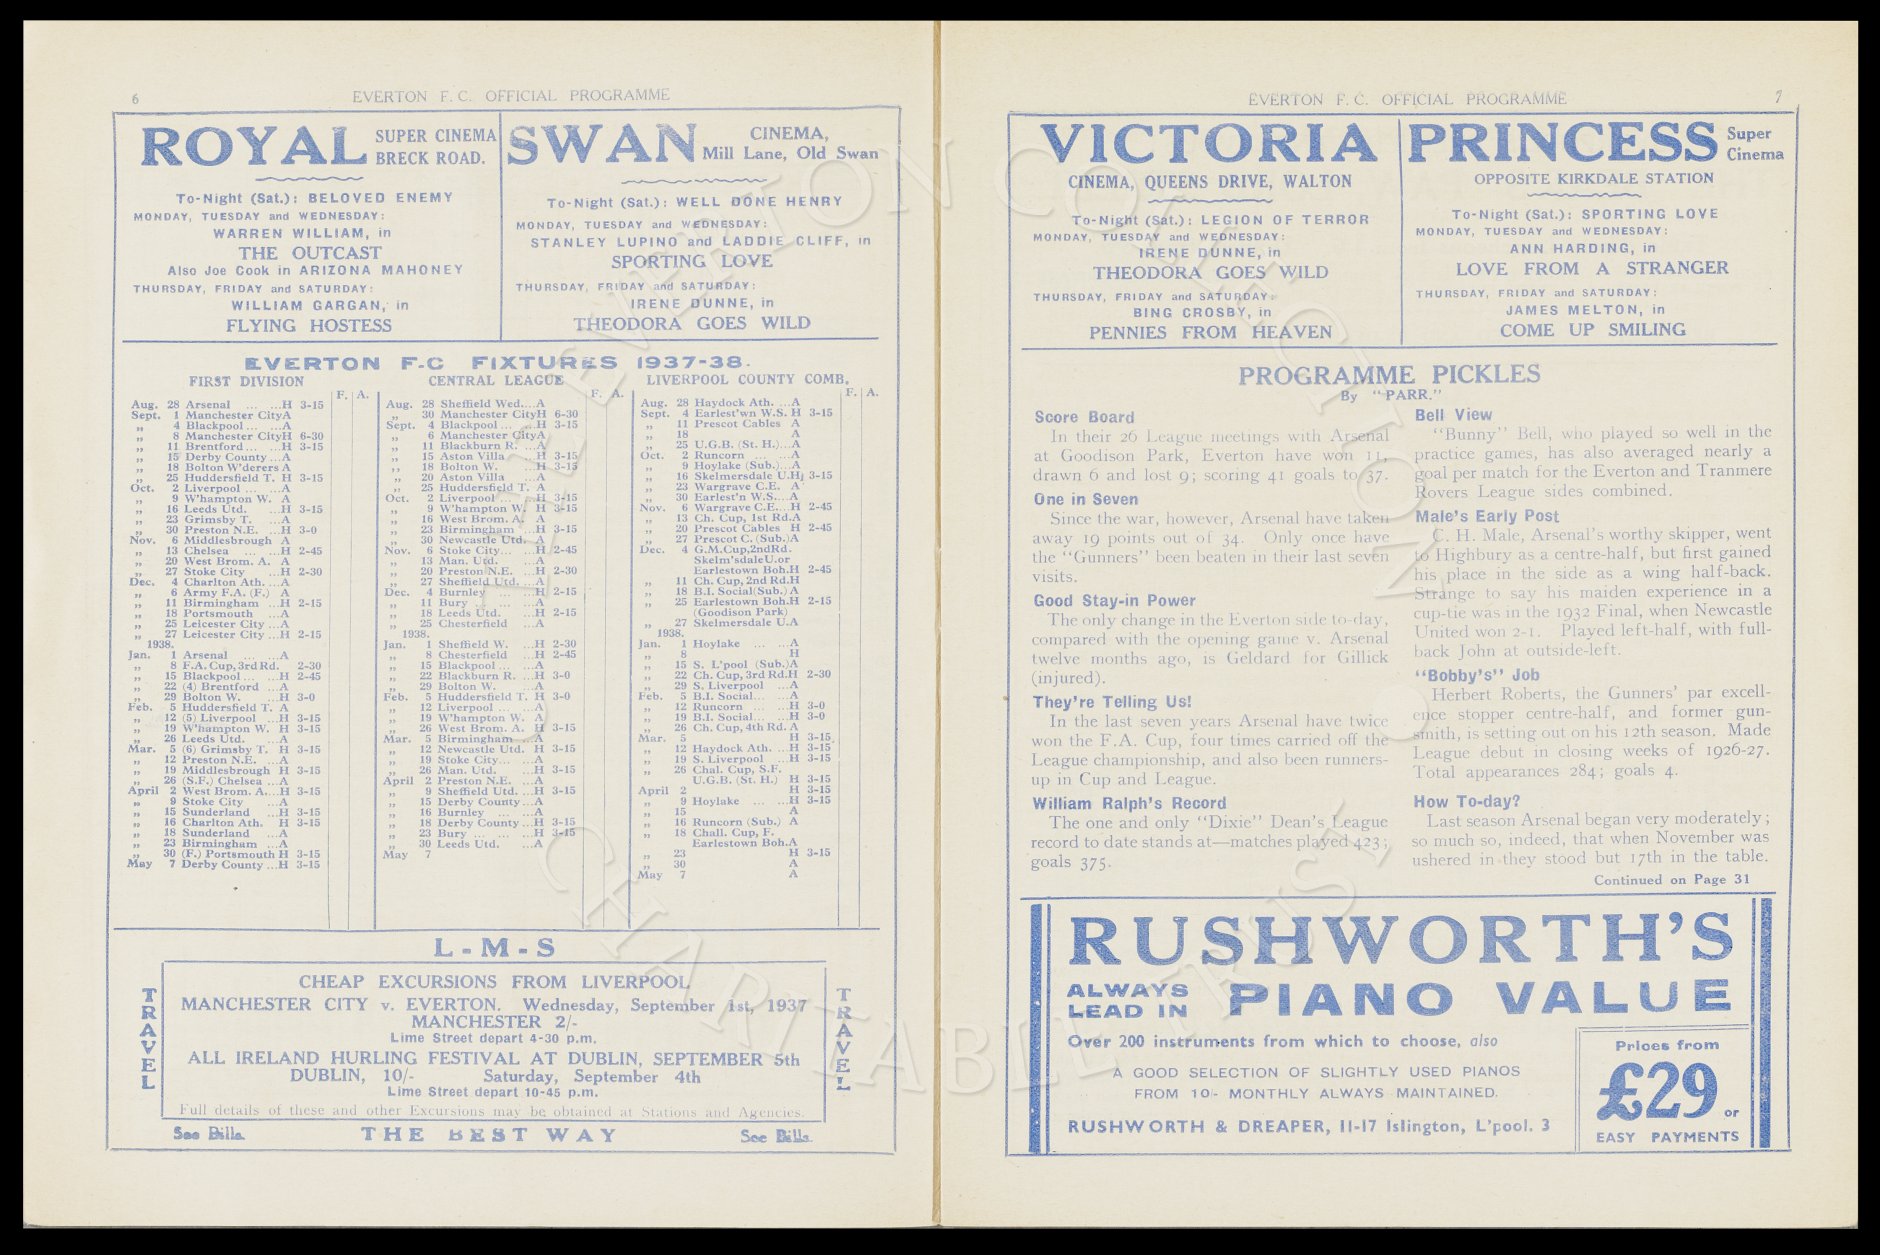 6
EVERTON F. C. OFFICIAL PROGRAMME
ROYAL SUPER CINEMA
BRECK ROAD.
To-Night (Sat.): BELOVED ENEMY
MONDAY, TUESDAY and WEDNESDAY:
WARREN WILLIAM, in
THE OUTCAST
Also Joe Cook in ARIZONA MAHONEY
THURSDAY, FRIDAY and SATURDAY:
WILLIAM GARGAN, in
FLYING HOSTESS
SWAN CINEMA,
Mill Lane, Old Swan
To-Night (Sat.): WELL DONE HENRY
MONDAY, TUESDAY and WEDNESDAY:
STANLEY LUPINO and LADDIE CLIFF, in
SPORTING LOVE
THURSDAY, FRIDAY and SATURDAY:
IRENE DUNNE, in
THEODORA GOES WILD
EVERTON F.C FIXTURES 1937-38.
FIRST DIVISION
F. A.
Aug. 28 Arsenal ... ...H 3-15
Sept. 1 Manchester City A
,, 4 Blackpool ... ...A
,, 8 Manchester City H 6-30
,, 11 Brentford ... ...H 3-15
,, 15 Derby County ...A
,, 18 Bolton W'derers A
,, 25 Huddersfield T. H 3-15
Oct. 2 Liverpool ... ...A
,, 9 W'hampton W. A
,, 16 Leeds Utd. ...H 3-15
,, 23 Grimsby T. ...A
,, 30 Preston N.E. ...H 3-0
Nov. 6 Middlesbrough A
,, 13 Chelsea ... ...H 2-45
,, 20 West Brom. A. A
,, 27 Stoke City ...H 2-30
Dec. 4 Charlton Ath. ...A
,, 6 Army F.A. (F.) A
,, 11 Birmingham ...H 2-15
,, 18 Portsmouth ...A
,, 25 Leicester City ...A
,, 27 Leicester City ...H 2-15
1938.
Jan. 1 Arsenal ... ...A
,, 8 F.A. Cup, 3rd Rd. 2-30
,, 15 Blackpool ... ...H 2-45
,, 22 (4) Brentford ...A
,, 29 Bolton W. ...H 3-0
Feb. 5 Huddersfield T. A
,, 12 (5) Liverpool ...H 3-15
,, 19 W'hampton W. H 3-15
,, 26 Leeds Utd. ...A
Mar. 5 (6) Grimsby T. H 3-15
,, 12 Preston N.E. ...A
,, 19 Middlesbrough H 3-15
,, 26 (S.F.) Chelsea ...A
April 2 West Brom. A. ...H 3-15
,, 9 Stoke City ...A
,, 15 Sunderland ...H 3-15
,, 16 Charlton Ath. H 3-15
,, 18 Sunderland ...A
,, 23 Birmingham ...A
,, 30 (F.) Portsmouth H 3-15
May 7 Derby County ...H 3-15
CENTRAL LEAGUE
F. A.
Aug. 28 Sheffield Wed. ...A
,, 30 Manchester City H 6-30
Sept. 4 Blackpool ... ...H 3-15
,, 6 Manchester City A
,, 11 Blackburn R. ...A
,, 15 Aston Villa ...H 3-15
,, 18 Bolton W. ...H 3-15
,, 20 Aston Villa ...A
,, 25 Huddersfield T. A
Oct. 2 Liverpool ... ...H 3-15
,, 9 W'hampton W. H 3-15
,, 16 West Brom. A. A
,, 23 Birmingham ...H 3-15
,, 30 Newcastle Utd. A
Nov. 6 Stoke City... ...H 2-45
,, 13 Man. Utd. ...A
,, 20 Preston N.E. ...H 2-30
,, 27 Sheffield Utd. ...A
Dec. 4 Burnley ... ...H 2-15
,, 11 Bury ... ... ...A
,, 18 Leeds Utd. ...H 2-15
,, 25 Chesterfield ...A
1938.
Jan. 1 Sheffield W. ...H 2-30
,, 8 Chesterfield ...H 2-45
,, 15 Blackpool ... ...A
,, 22 Blackburn R. ...H 3-0
,, 29 Bolton W. ...A
Feb. 5 Huddersfield T. H 3-0
,, 12 Liverpool ... ...A
,, 19 W'hampton W. A
,, 26 West Brom. A. H 3-15
Mar. 5 Birmingham ...A
,, 12 Newcastle Utd. H 3-15
,, 19 Stoke City... ...A
,, 26 Man. Utd. ...H 3-15
April 2 Preston N.E. ...A
,, 9 Sheffield Utd. ...H 3-15
,, 15 Derby County ...A
,, 16 Burnley ... ...A
,, 18 Derby County ...H 3-15
,, 23 Bury ... ... ...H 3-15
,, 30 Leeds Utd. ...A
May 7
LIVERPOOL COUNTY COMB.
F. A.
Aug. 28 Haydock Ath. ...A
Sept. 4 Earlest'wn W.S. H 3-15
,, 11 Prescot Cables A
,, 18 A
,, 25 U.G.B. (St. H.)...A
Oct. 2 Runcorn ... ...A
,, 9 Hoylake (Sub.)...A
,, 16 Skelmersdale U. H 3-15
,, 23 Wargrave C.E. A
,, 30 Earlest'n W.S. ...A
Nov. 6 Wargrave C.E. ...H 2-45
,, 13 Ch. Cup, 1st Rd. A
,, 20 Prescot Cables H 2-45
,, 27 Prescot C. (Sub.) A
Dec. 4 G.M.Cup, 2nd Rd.
Skelm'sdale U. or
Earlestown Boh. H 2-45
,, 11 Ch. Cup, 2nd Rd. H
,, 18 B.I. Social (Sub.) A
,, 25 Earlestown Boh. H 2-15
(Goodison Park)
,, 27 Skelmersdale U. A
1938.
Jan. 1 Hoylake ... ...A
,, 8 H
,, 15 S. L'pool (Sub.) A
,, 22 Ch. Cup, 3rd Rd. H 2-30
,, 29 S. Liverpool ...A
Feb. 5 B.I. Social... ...A
,, 12 Runcorn ... ...H 3-0
,, 19 B.I. Social... ...H 3-0
,, 26 Ch. Cup, 4th Rd. A
Mar. 5 H 3-15
,, 12 Haydock Ath. ...H 3-15
,, 19 S. Liverpool ...H 3-15
,, 26 Chal. Cup, S.F.
U.G.B. (St. H.) H 3-15
April 2 H 3-15
,, 9 Hoylake ... ...H 3-15
,, 15 A
,, 16 Runcorn (Sub.) A
,, 18 Chall. Cup, F.
Earlestown Boh. A
,, 23 H 3-15
,, 30 A
May 7 A
L-M-S
TRAVEL
CHEAP EXCURSIONS FROM LIVERPOOL
MANCHESTER CITY v. EVERTON. Wednesday, September 1st, 1937
MANCHESTER 2/-
Lime Street depart 4-30 p.m.
ALL IRELAND HURLING FESTIVAL AT DUBLIN, SEPTEMBER 5th
DUBLIN, 10/- Saturday, September 4th
Lime Street depart 10-45 p.m.
Full details of these and other Excursions may be obtained at Stations and Agencies.
TRAVEL
See Bills. THE BEST WAY See Bills.
EVERTON F. C. OFFICIAL PROGRAMME
7
VICTORIA
CINEMA, QUEENS DRIVE, WALTON
To-Night (Sat.): LEGION OF TERROR
MONDAY, TUESDAY and WEDNESDAY:
IRENE DUNNE, in
THEODORA GOES WILD
THURSDAY, FRIDAY and SATURDAY:
BING CROSBY, in
PENNIES FROM HEAVEN
PRINCESS Super
Cinema
OPPOSITE KIRKDALE STATION
To-Night (Sat.): SPORTING LOVE
MONDAY, TUESDAY and WEDNESDAY:
ANN HARDING, in
LOVE FROM A STRANGER
THURSDAY, FRIDAY and SATURDAY:
JAMES MELTON, in
COME UP SMILING
PROGRAMME PICKLES
By "PARR."
Score Board
In their 26 League meetings with Arsenal
at Goodison Park, Everton have won 11,
drawn 6 and lost 9; scoring 41 goals to 37.
One in Seven
Since the war, however, Arsenal have taken
away 19 points out of 34. Only once have
the "Gunners" been beaten in their last seven
visits.
Good Stay-in Power
The only change in the Everton side to-day,
compared with the opening game v. Arsenal
twelve months ago, is Geldard for Gillick
(injured).
They're Telling Us!
In the last seven years Arsenal have twice
won the F.A. Cup, four times carried off the
League championship, and also been runners-
up in Cup and League.
William Ralph's Record
The one and only "Dixie" Dean's League
record to date stands at—matches played 423;
goals 375.
Bell View
"Bunny" Bell, who played so well in the
practice games, has also averaged nearly a
goal per match for the Everton and Tranmere
Rovers League sides combined.
Male's Early Post
C. H. Male, Arsenal's worthy skipper, went
to Highbury as a centre-half, but first gained
his place in the side as a wing half-back.
Strange to say his maiden experience in a
cup-tie was in the 1932 Final, when Newcastle
United won 2-1. Played left-half, with full-
back John at outside-left.
"Bobby's" Job
Herbert Roberts, the Gunners' par excell-
ence stopper centre-half, and former gun-
smith, is setting out on his 12th season. Made
League debut in closing weeks of 1926-27.
Total appearances 284; goals 4.
How To-day?
Last season Arsenal began very moderately;
so much so, indeed, that when November was
ushered in they stood but 17th in the table.
Continued on Page 31
RUSHWORTH'S
ALWAYS
LEAD IN PIANO VALUE
Over 200 instruments from which to choose, also
A GOOD SELECTION OF SLIGHTLY USED PIANOS
FROM 10/- MONTHLY ALWAYS MAINTAINED.
RUSHWORTH & DREAPER, 11-17 Islington, L'pool. 3
Prices from
£29 or
EASY PAYMENTS
THE EVERTON COLLECTION
CHARITABLE TRUST